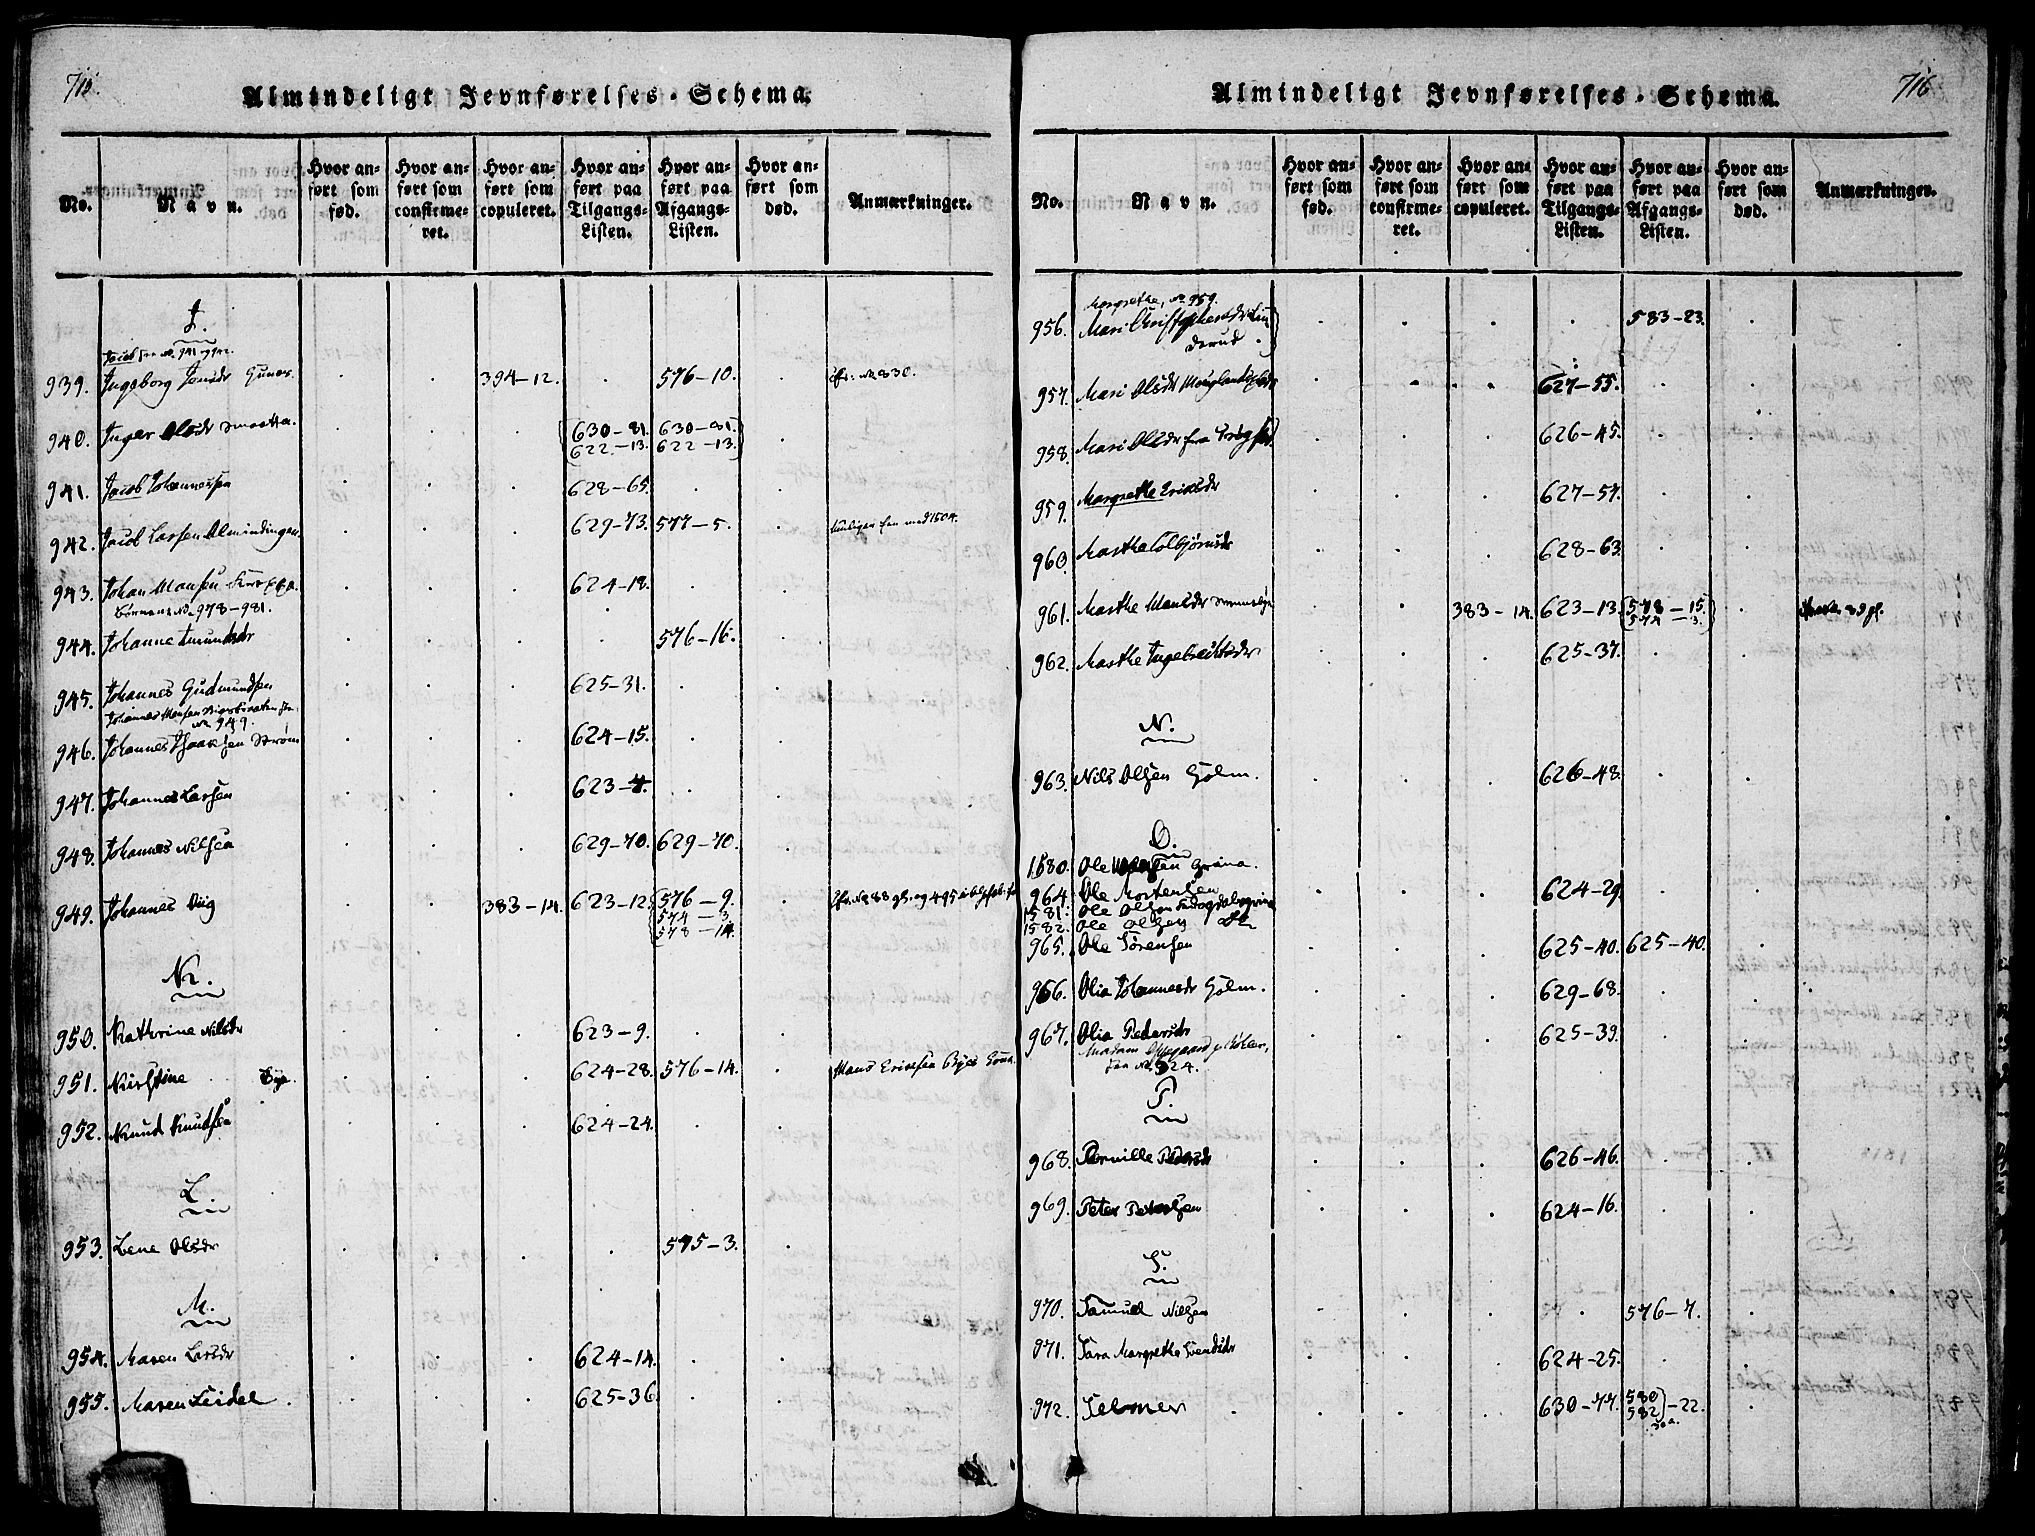 715.
Almindeligt Jevnførelses-Schema.
No. Navn. Hvor anført som fød. Hvor anført som confirmeret. Hvor anført som copuleret. Hvor anført paa Tilgangs-Listen. Hvor anført paa Afgangs-Listen. Hvor anført som død. Anmærkninger.
J.
Jacob see No. 941 og 942.
939. Ingeborg Jensdr 394-12. 576-10. cfr. No. 830.
940. Inger Olsdr 630-81. 630-81.
622-13. 622-13.
941. Jacob Johannessen 628-65.
942. Jacob Larsen Almindingen 629-73. 577-5. med 1504.
943. Johan Monsen 624-18.
Børnene No. 978-981.
944. Johanne Amundsdr 576-16.
945. Johannes Gudmundsen 625-31.
Johannes Monsen
No. 949.
946. Johannes Isaaksen Strøm 624-15.
947. Johannes Larsen 623-4.
948. Johannes Nilsen 629-70. 629-70.
949. Johannes 383-14. 623-12. 576-9.
574-3.
578-14.
K.
950. Kathrine Nilsdr 623-9.
951. Kirstine Bye. 624-28. 576-14. Hans Eriksen Byes Kona.
952. Knud Knudsen 624-24.
L.
953. Lene Olsdr 575-3.
M.
954. Maren Larsdr 624-14.
955. Maren Seidel 625-36.
716
Almindeligt Jevnførelses-Schema.
No. Navn. Hvor anført som fød. Hvor anført som confirmeret. Hvor anført som copuleret. Hvor anført paa Tilgangs-Listen. Hvor anført paa Afgangs-Listen. Hvor anført som død. Anmærkninger.
Margrethe, No. 959.
956. Mari Christophersdr Linderud 583-23.
957. Mari Olsdr 627-55.
958. Mari Olsdr fra 626-45.
959. Margrethe Eriksdr 627-57.
960. Marthe Colbjørnsdr 628-63.
961. Marthe Monsdr 383-14. 623-13. 578-15.
574-3.
962. Marthe Ingebrechtsdr 625-37.
N.
963. Nils Olsen Holm. 626-48.
O.
1580. Ole
964. Ole Mortensen 624-29.
1581. Ole Olsen
1582. Ole Olsen
965. Ole Sørensen 625-40. 625-40.
966. Olia Johannesdr Holm. 629-68.
967. Olia Pedersdr 625-39.
Madam
see No. 924.
P.
968. Pernille Pedersdr 626-46.
969. Peter Petersen 624-16.
S.
970. Samuel Nilsen 576-7.
971. Sara Margrethe Svendsdr 624-25.
972. Selmer 630-77. 580
582 -22.
30a.